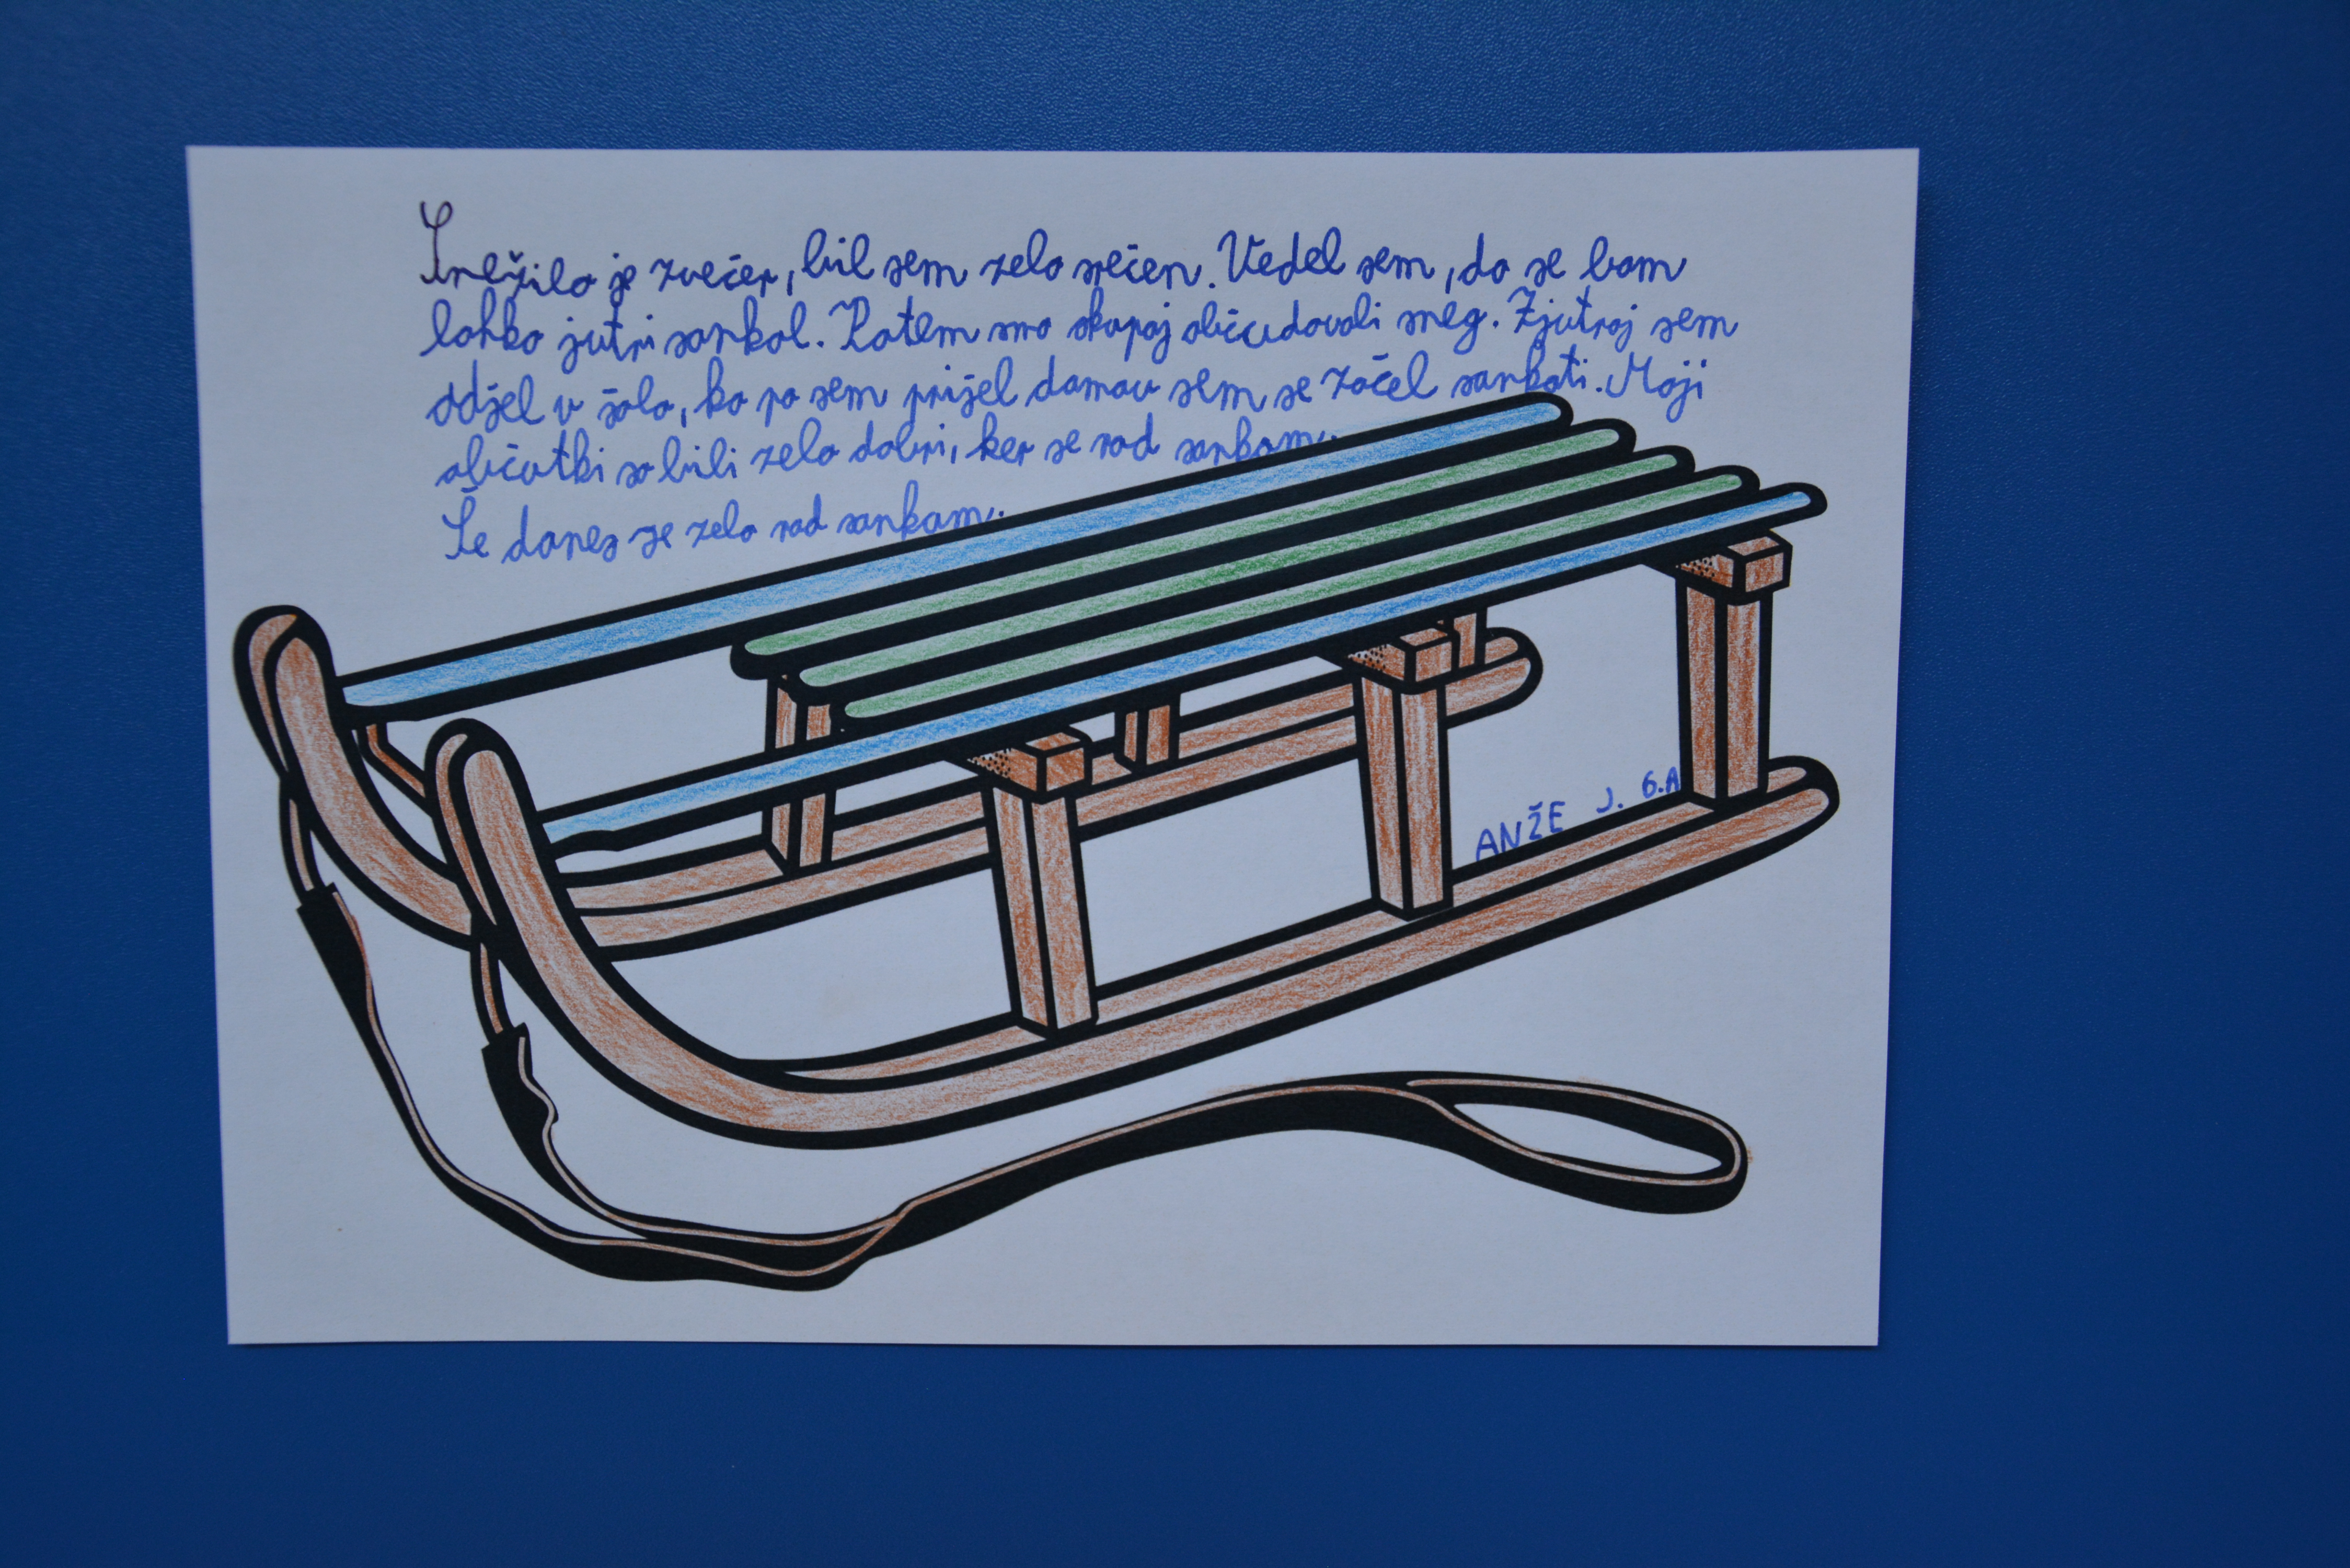 Snežilo je zvečer, bil sem zelo srečen. Vedel sem, da se bom
lahko jutri sankal. Potem smo skupaj občudovali sneg. Zjutraj sem
odšel v šolo, ko pa sem prišel domov sem se začel sankati. Moji
občutki so bili zelo dobri, ker se rad sankam.
Še danes se zelo rad sankam.
ANŽE J. 6.A